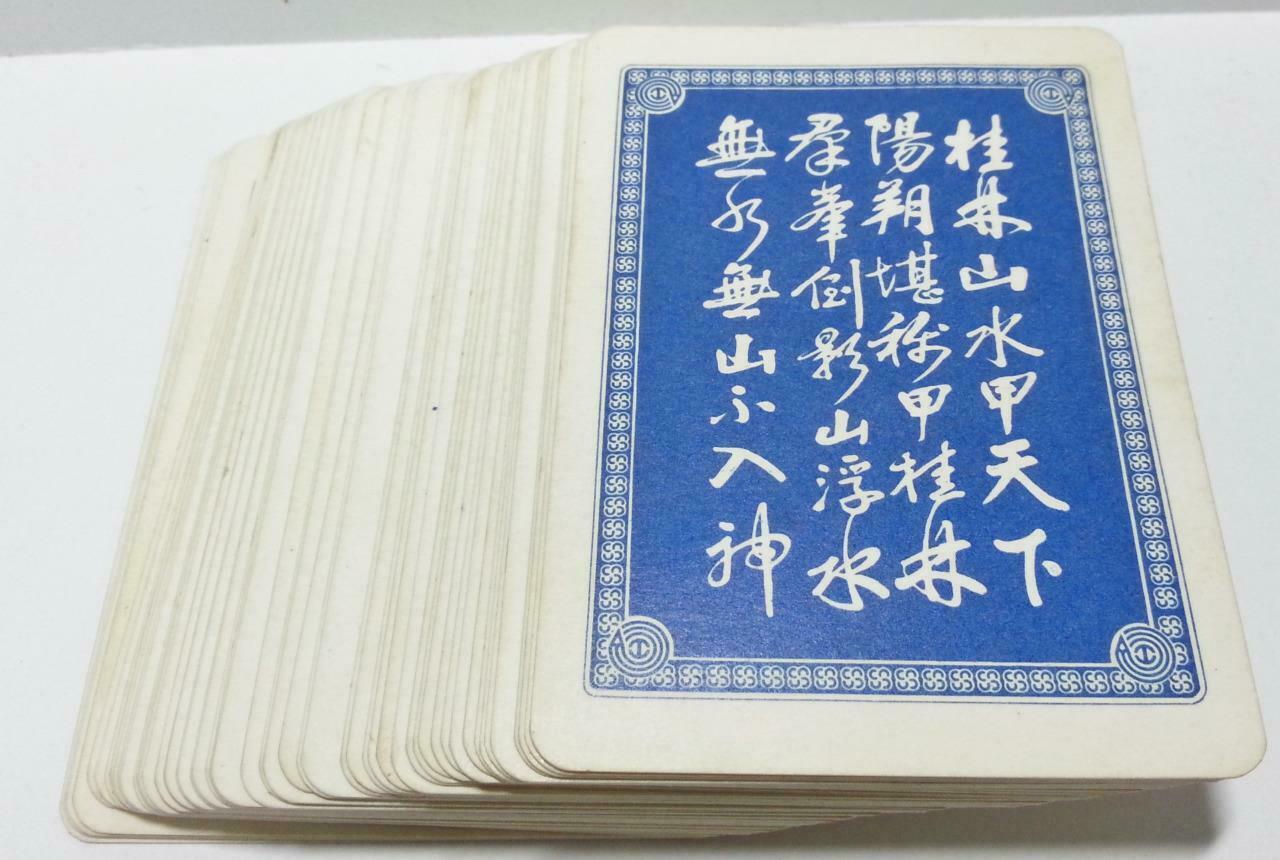 桂林山水甲天下
陽朔堪称甲桂林
羣峯倒影山浮水
無水無山不入神